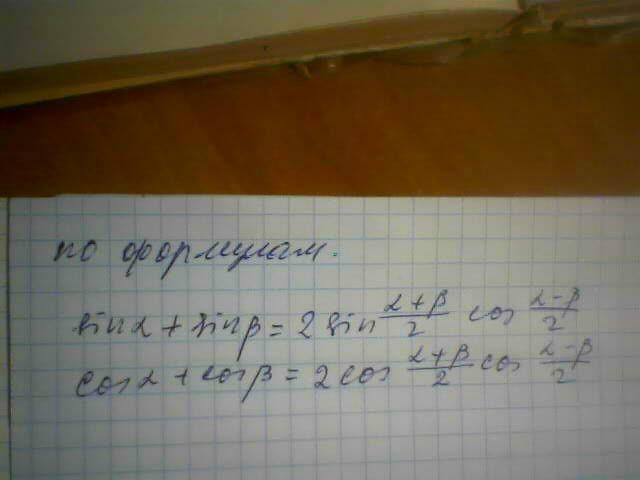 по формулам.
sinα + sinβ = 2 sin (α+β)/2 cos (α-β)/2
cosα + cosβ = 2 cos (α+β)/2 cos (α-β)/2